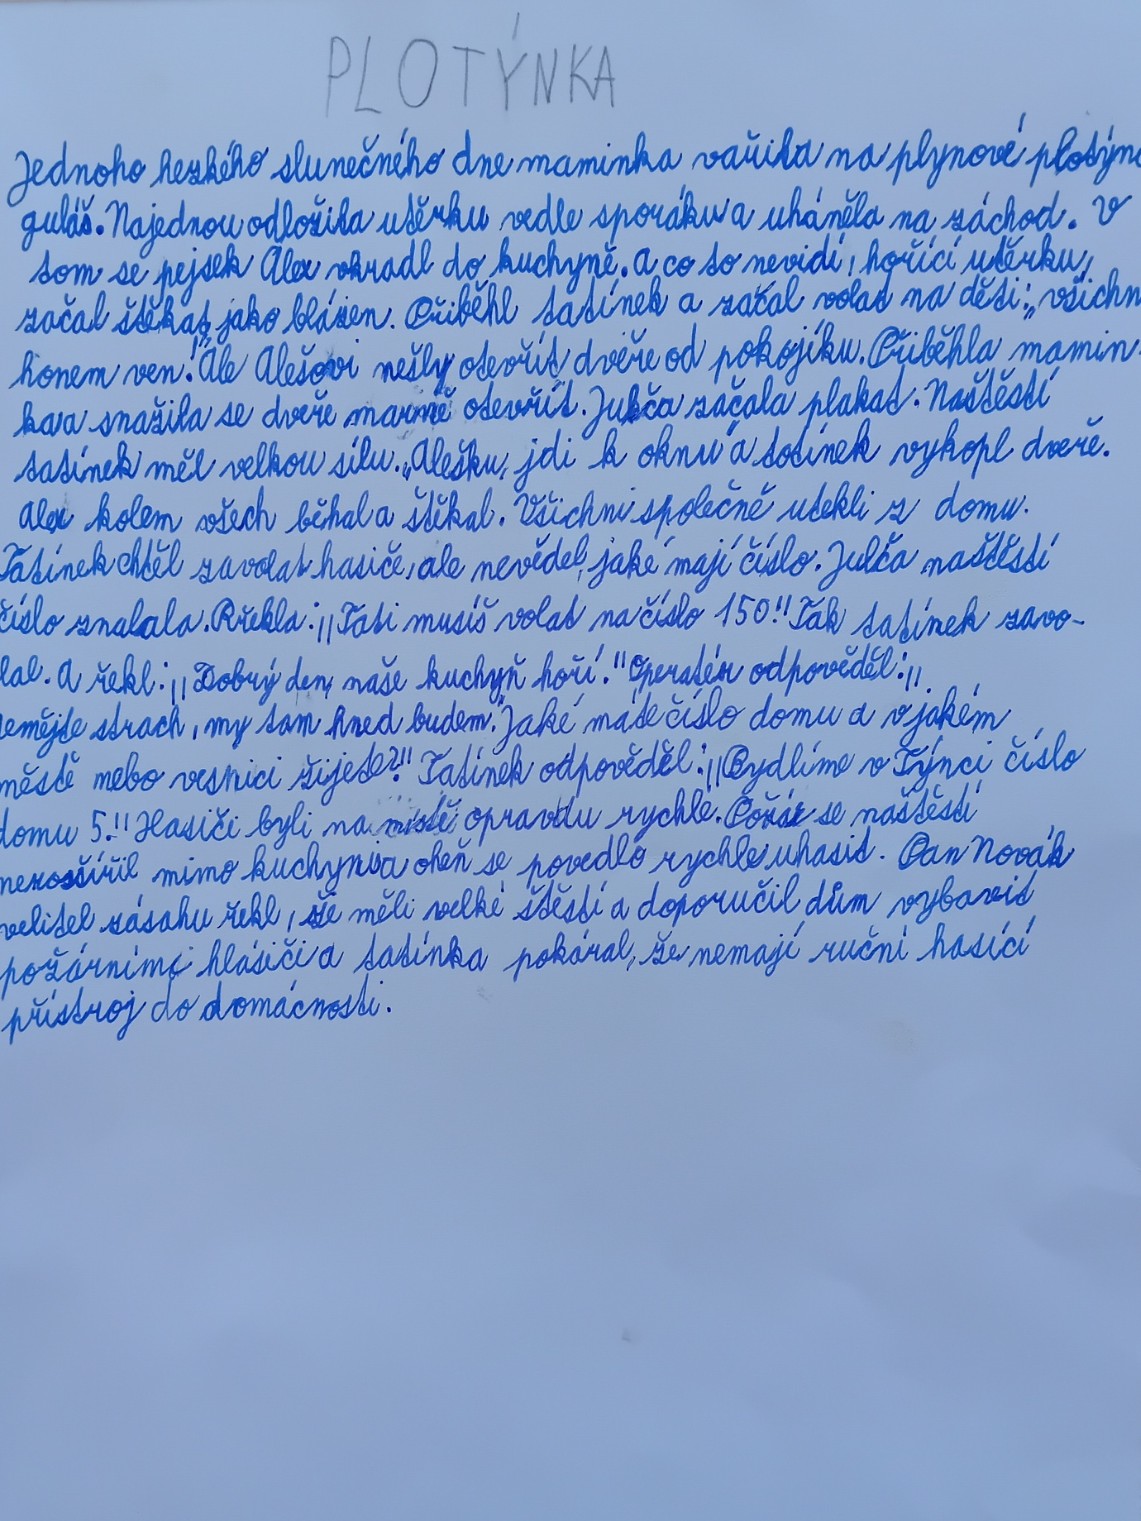 PLOTÝNKA
Jednoho hezkého slunečného dne maminka vařila na plynové plotýn
guláš. Najednou odložila utěrku vedle sporáku a uháněla na záchod. V
tom se pejsek Alex vkradl do kuchyně. A co to nevidí, hořící utěrku,
začal štěkat, jako blázen. Přiběhl tatínek a začal volat na děti: „všichn
honem ven!" Ale Alešovi nešly otevřít dveře od pokojíku. Přiběhla mamin-
ka a snažila se dveře marně otevřít. Julča začala plakat. Naštěstí
tatínek měl velkou sílu. „Alešku, jdi k oknu" a totínek vykopl dveře.
Alex kolem všech běhal a štěkal. Všichni společně utekli z domu.
Tatínek chtěl zavolat hasiče, ale nevěděl, jaké mají číslo. Julča naštěstí
číslo znalala. Řekla: „Tati musíš volat na číslo 150!" Tak tatínek zavo-
lal. A řekl: „Dobrý den, naše kuchyň hoří." Operatér odpověděl: „
nemějte strach, my tam hned budem. Jaké máte číslo domu a v jakém
městě nebo vesnici žijete?" Tatínek odpověděl: „Bydlíme v Týnci číslo
domu 5." Hasiči byli na místě opravdu rychle. Požár se naštěstí
nerosšířil mimo kuchyni a oheň se povedlo rychle uhasit. Pan Novák
velitel zásahu řekl, že měli velké štěstí a doporučil dům vybavit
požárními hlásiči a tatínka pokáral, že nemají ruční hasící
přístroj do domácnosti.